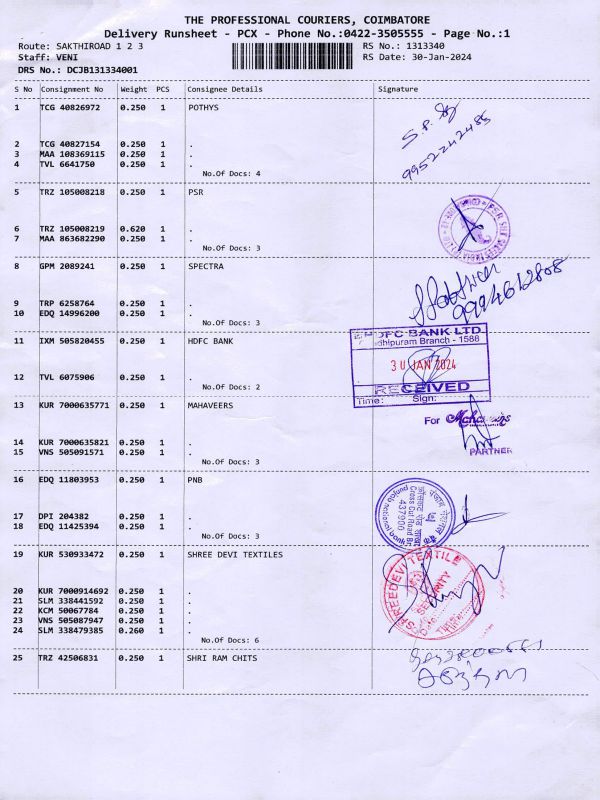 THE PROFESSIONAL COURIERS, COIMBATORE
Delivery Runsheet - PCX - Phone No.:0422-3505555 - Page No.:1
Route: SAKTHIROAD 1 2 3 RS No.: 1313340
Staff: VENI RS Date: 30-Jan-2024
DRS No.: DCJB131334001
S No Consignment No Weight PCS Consignee Details Signature
1 TCG 40826972 0.250 1 POTHYS
9952242485
2 TCG 40827154 0.250 1 .
3 MAA 108369115 0.250 1 .
4 TVL 6641750 0.250 1 .
No.Of Docs: 4
5 TRZ 105008218 0.250 1 PSR
6 TRZ 105008219 0.620 1 .
7 MAA 863682290 0.250 1 .
No.Of Docs: 3
8 GPM 2089241 0.250 1 SPECTRA
9994612808
9 TRP 6258764 0.250 1 .
10 EDQ 14996200 0.250 1 .
No.Of Docs: 3
11 IXM 505820455 0.250 1 HDFC BANK
HDFC BANK LTD
Branch - 1588
30 JAN 2024
RECEIVED
Time: Sign:
12 TVL 6075906 0.250 1 .
No.Of Docs: 2
13 KUR 7000635771 0.250 1 MAHAVEERS
For
PARTNER
14 KUR 7000635821 0.250 1 .
15 VNS 505091571 0.250 1 .
No.Of Docs: 3
16 EDQ 11803953 0.250 1 PNB
Cross Cut Road
437900
17 DPI 204382 0.250 1 .
18 EDQ 11425394 0.250 1 .
No.Of Docs: 3
19 KUR 530933472 0.250 1 SHREE DEVI TEXTILES
SHREEDEVI TEXTILE
SECURITY
20 KUR 7000914692 0.250 1 .
21 SLM 338441592 0.250 1 .
22 KCM 50067784 0.250 1 .
23 VNS 505087947 0.250 1 .
24 SLM 338479385 0.260 1 .
No.Of Docs: 6
25 TRZ 42506831 0.250 1 SHRI RAM CHITS